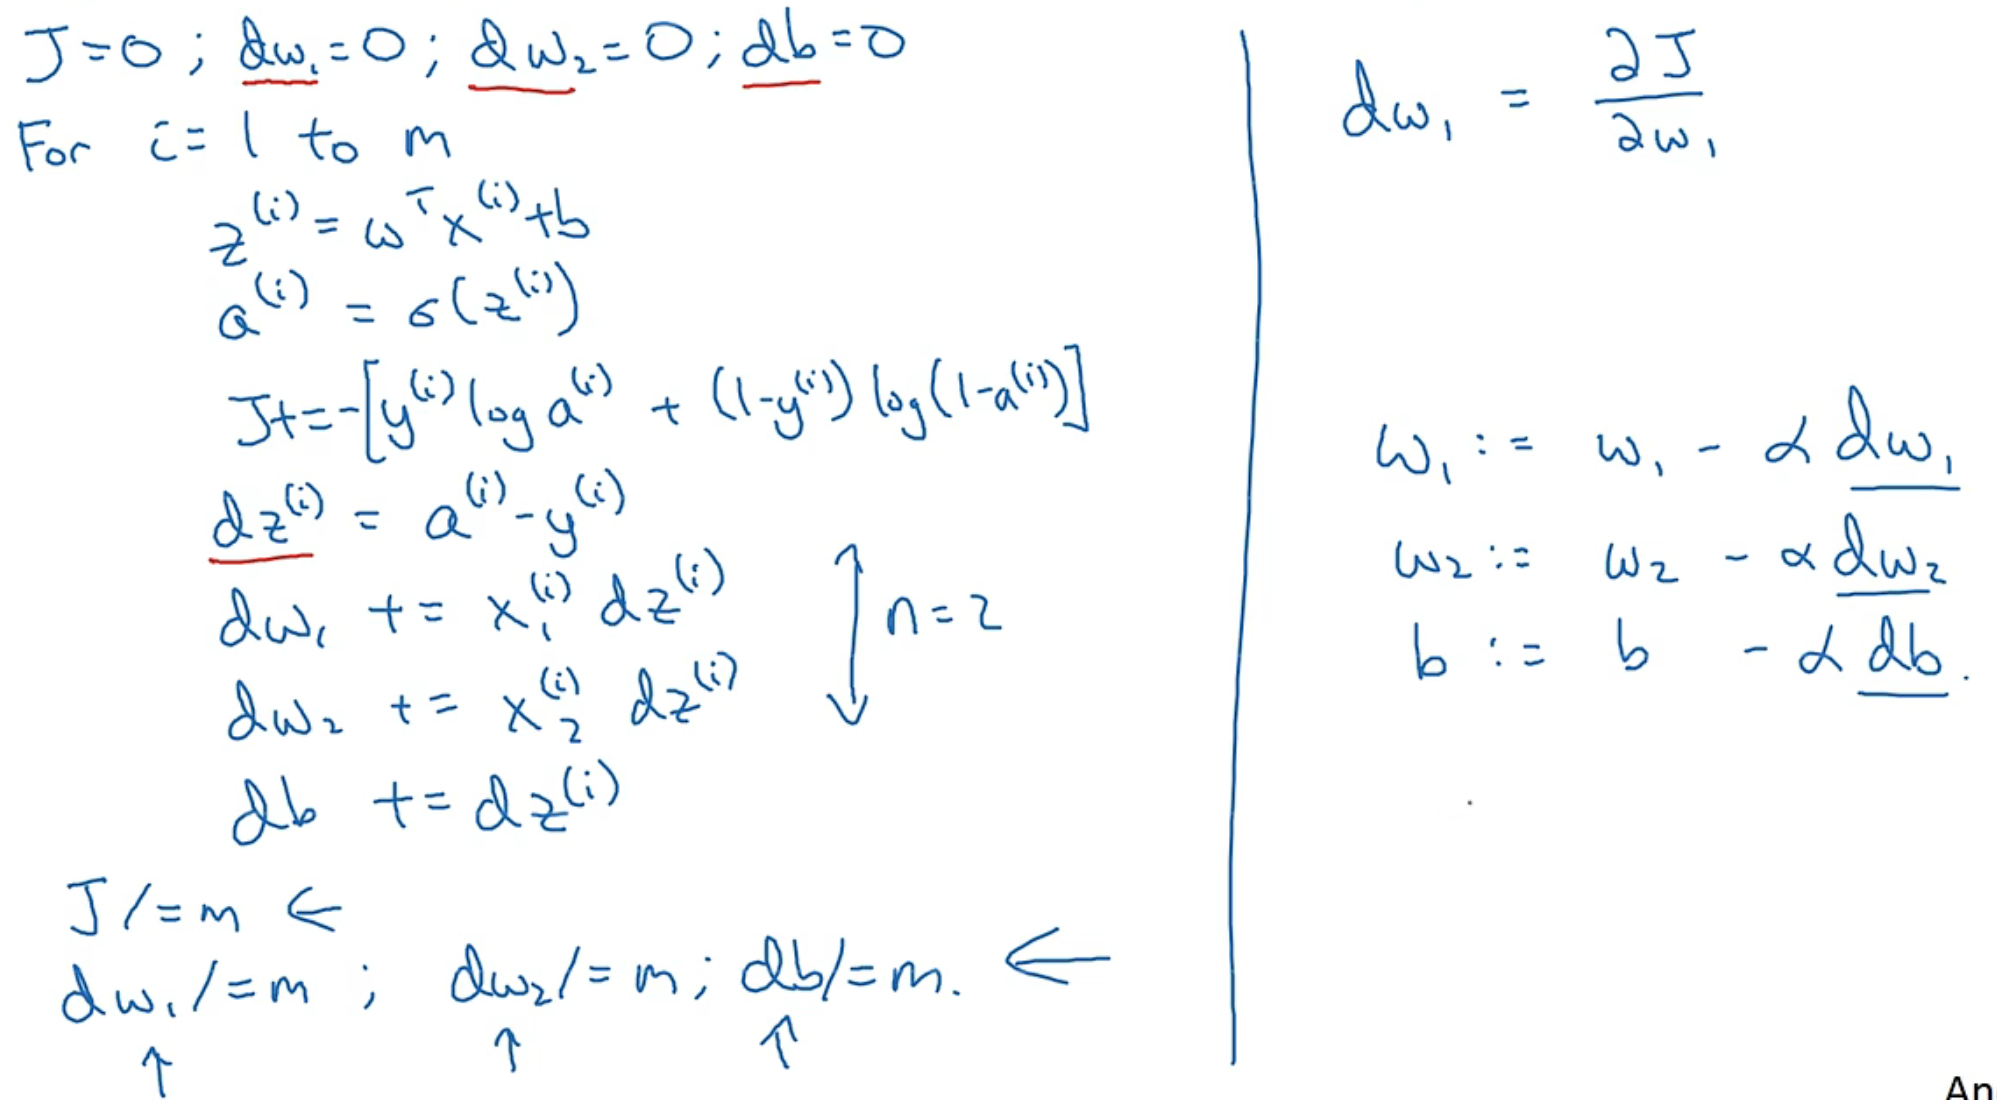 J=0 ; dw₁=0 ; dw₂=0 ; db=0
For i=1 to m
z⁽ⁱ⁾ = wᵀx⁽ⁱ⁾+b
a⁽ⁱ⁾ = σ(z⁽ⁱ⁾)
J+=-[y⁽ⁱ⁾ log a⁽ⁱ⁾ + (1-y⁽ⁱ⁾) log(1-a⁽ⁱ⁾)]
dz⁽ⁱ⁾ = a⁽ⁱ⁾-y⁽ⁱ⁾
dw₁ += x₁⁽ⁱ⁾ dz⁽ⁱ⁾
dw₂ += x₂⁽ⁱ⁾ dz⁽ⁱ⁾
n=2
db += dz⁽ⁱ⁾
J /=m ←
dw₁ /=m ; dw₂ /=m ; db/=m. ←
↑ ↑ ↑
dw₁ = ∂J/∂w₁
w₁ := w₁ - α dw₁
w₂ := w₂ - α dw₂
b := b - α db.
An